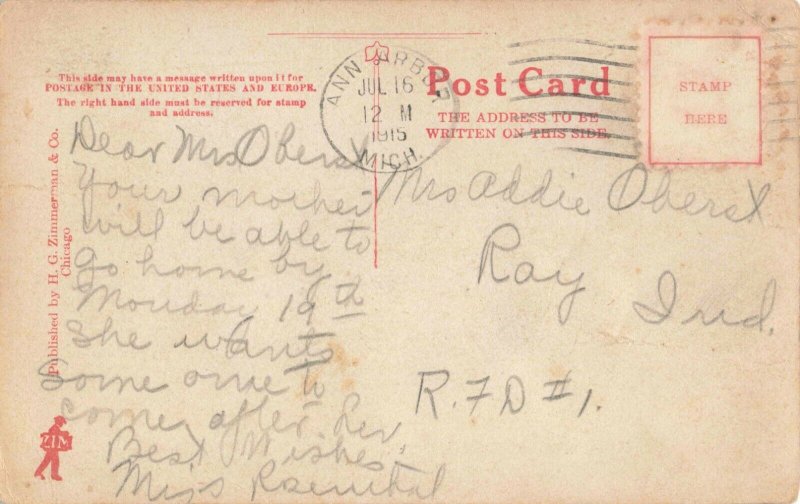 This side may have a message written upon it for
POSTAGE IN THE UNITED STATES AND EUROPE.
The right hand side must be reserved for stamp
and address.
ANN ARBOR
JUL 16
12 M
1915
MICH.
Post Card
THE ADDRESS TO BE
WRITTEN ON THIS SIDE.
STAMP
HERE
Published by H. G. Zimmerman & Co.
Chicago
ZIM
Dear Mrs Oberst
Your mother
will be able to
go home by
Monday 19th
She wants
Some one to
come after her.
Best Wishes
Miss Rosenthal
Mrs Addie Oberst
Ray
Ind.
R.F.D #1.